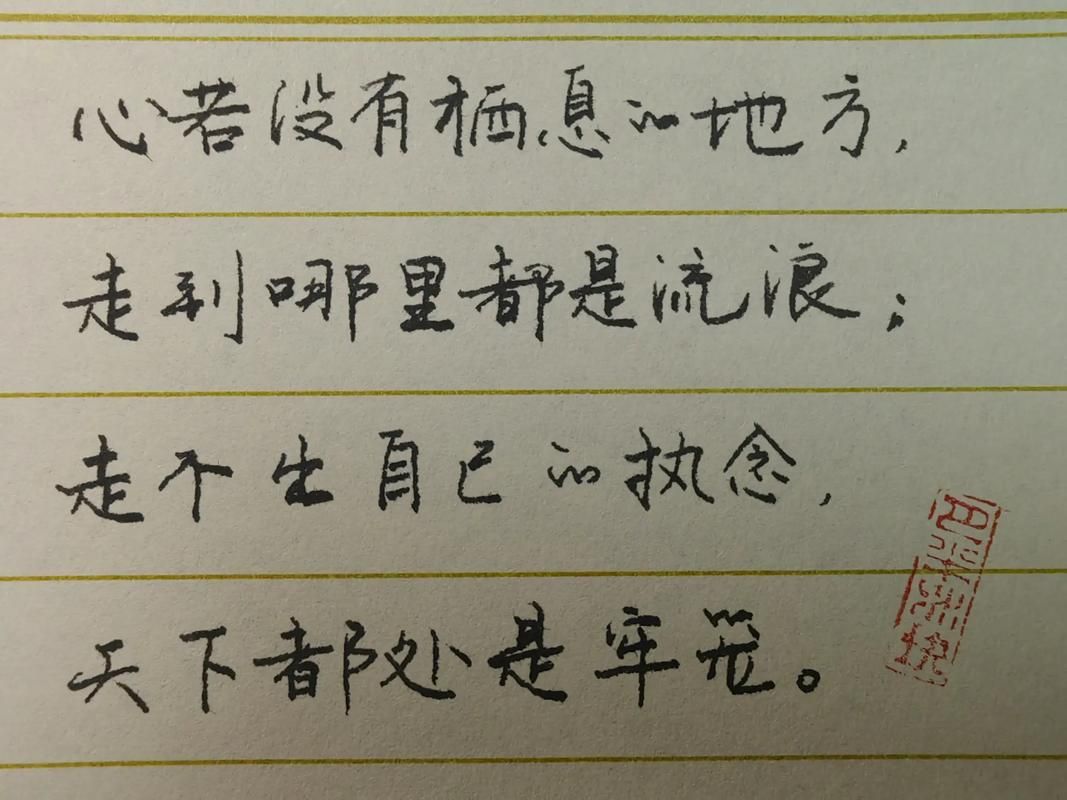 心若没有栖息的地方，
走到哪里都是流浪；
走不出自己的执念，
天下都处是牢笼。